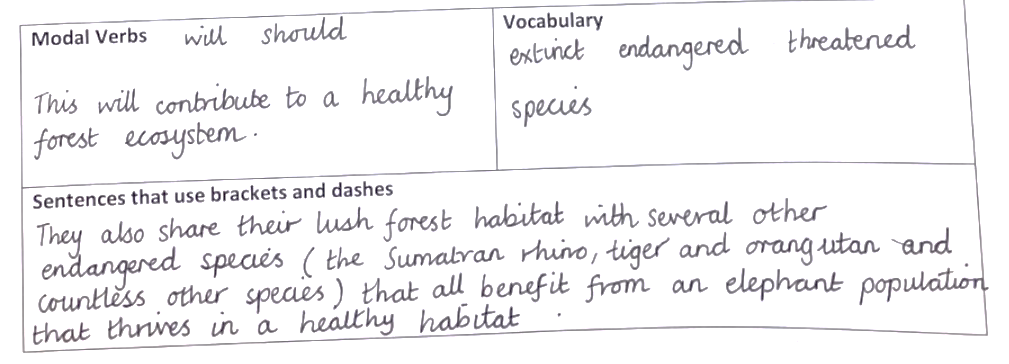 Modal Verbs will should
This will contribute to a healthy
forest ecosystem.
Vocabulary
extinct endangered threatened
species
Sentences that use brackets and dashes
They also share their lush forest habitat with several other
endangered species (the Sumatran rhino, tiger and orangutan and
countless other species) that all benefit from an elephant population
that thrives in a healthy habitat.